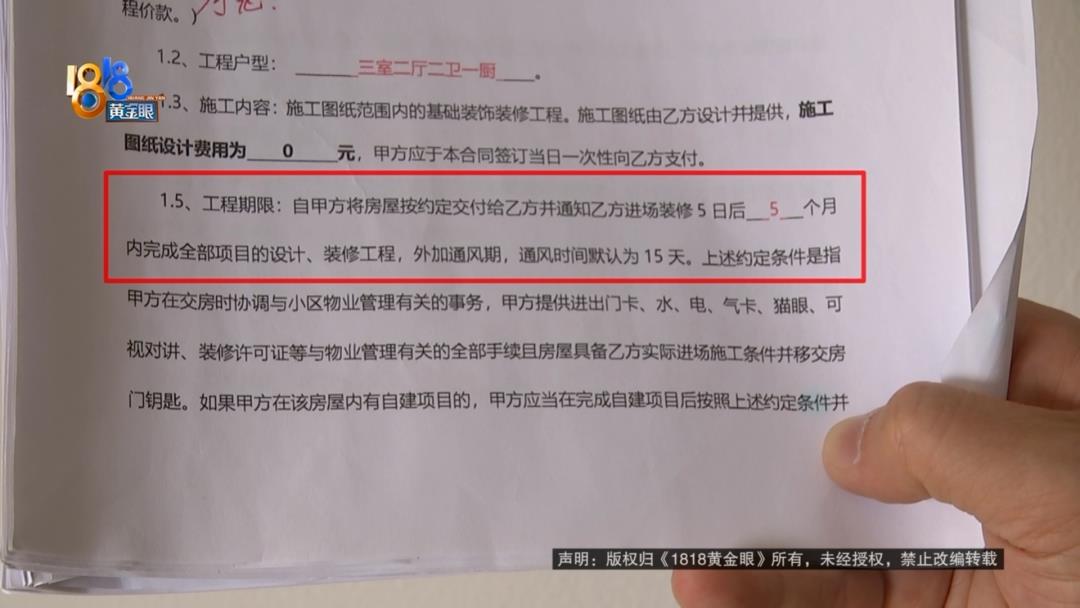 程价款。）
1.2、工程户型：三室二厅二卫一厨。
1818
黄金眼
HUANG JIN YAN
1.3、施工内容：施工图纸范围内的基础装饰装修工程。施工图纸由乙方设计并提供，施工
图纸设计费用为 0 元，甲方应于本合同签订当日一次性向乙方支付。
1.5、工程期限：自甲方将房屋按约定交付给乙方并通知乙方进场装修5日后 5 个月
内完成全部项目的设计、装修工程，外加通风期，通风时间默认为15天。上述约定条件是指
甲方在交房时协调与小区物业管理有关的事务，甲方提供进出门卡、水、电、气卡、猫眼、可
视对讲、装修许可证等与物业管理有关的全部手续且房屋具备乙方实际进场施工条件并移交房
门钥匙。如果甲方在该房屋内有自建项目的，甲方应当在完成自建项目后按照上述约定条件并
声明：版权归《1818黄金眼》所有，未经授权，禁止改编转载